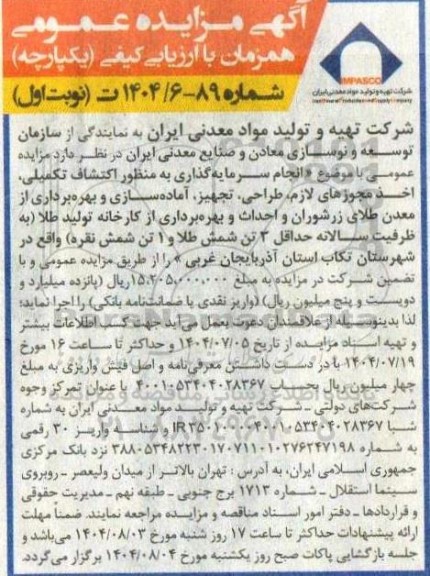 آگهی مزایده عمومی
همزمان با ارزیابی کیفی (یکپارچه)
IMPASCO
شرکت تهیه و تولید مواد معدنی ایران
شماره ۸۹-۱۴۰۴/۶ ت (نوبت اول)
شرکت تهیه و تولید مواد معدنی ایران به نمایندگی از سازمان
توسعه و نوسازی معادن و صنایع معدنی ایران در نظر دارد مزایده
عمومی با موضوع «انجام سرمایه‌گذاری به منظور اکتشاف تکمیلی،
اخذ مجوزهای لازم، طراحی، تجهیز، آماده‌سازی و بهره‌برداری از
معدن طلای زرشوران و احداث و بهره‌برداری از کارخانه تولید طلا (به
ظرفیت سالانه حداقل ۳ تن شمش طلا و ۱ تن شمش نقره) واقع در
شهرستان تکاب استان آذربایجان غربی» را از طریق مزایده عمومی و با
تضمین شرکت در مزایده به مبلغ ۱۵،۲۰۵،۰۰۰،۰۰۰ ریال (پانزده میلیارد و
دویست و پنج میلیون ریال) (واریز نقدی یا ضمانت‌نامه بانکی) را اجرا نماید؛
لذا بدینوسیله از علاقمندان دعوت بعمل می‌آید جهت کسب اطلاعات بیشتر
و تهیه اسناد مزایده از تاریخ ۱۴۰۴/۰۷/۰۵ و حداکثر تا ساعت ۱۶ مورخ
۱۴۰۴/۰۷/۱۹ با در دست داشتن معرفی‌نامه و اصل فیش واریزی به مبلغ
چهار میلیون ریال بحساب ۴۰۰۱۰۵۳۴۰۴۰۲۸۳۶۷ با عنوان تمرکز وجوه
شرکت‌های دولتی - شرکت تهیه و تولید مواد معدنی ایران به شماره
شبا و شناسه واریز ۳۰ رقمی
به شماره نزد بانک مرکزی
جمهوری اسلامی ایران، به آدرس : تهران بالاتر از میدان ولیعصر - روبروی
سینما استقلال - شماره ۱۷۱۳ برج جنوبی - طبقه نهم - مدیریت حقوقی
و قراردادها - دفتر امور اسناد مناقصه و مزایده مراجعه نمایند. ضمنا مهلت
ارائه پیشنهادات حداکثر تا ساعت ۱۷ روز شنبه مورخ ۱۴۰۴/۰۸/۰۳ می‌باشد و
جلسه بازگشایی پاکات صبح روز یکشنبه مورخ ۱۴۰۴/۰۸/۰۴ برگزار می‌گردد.